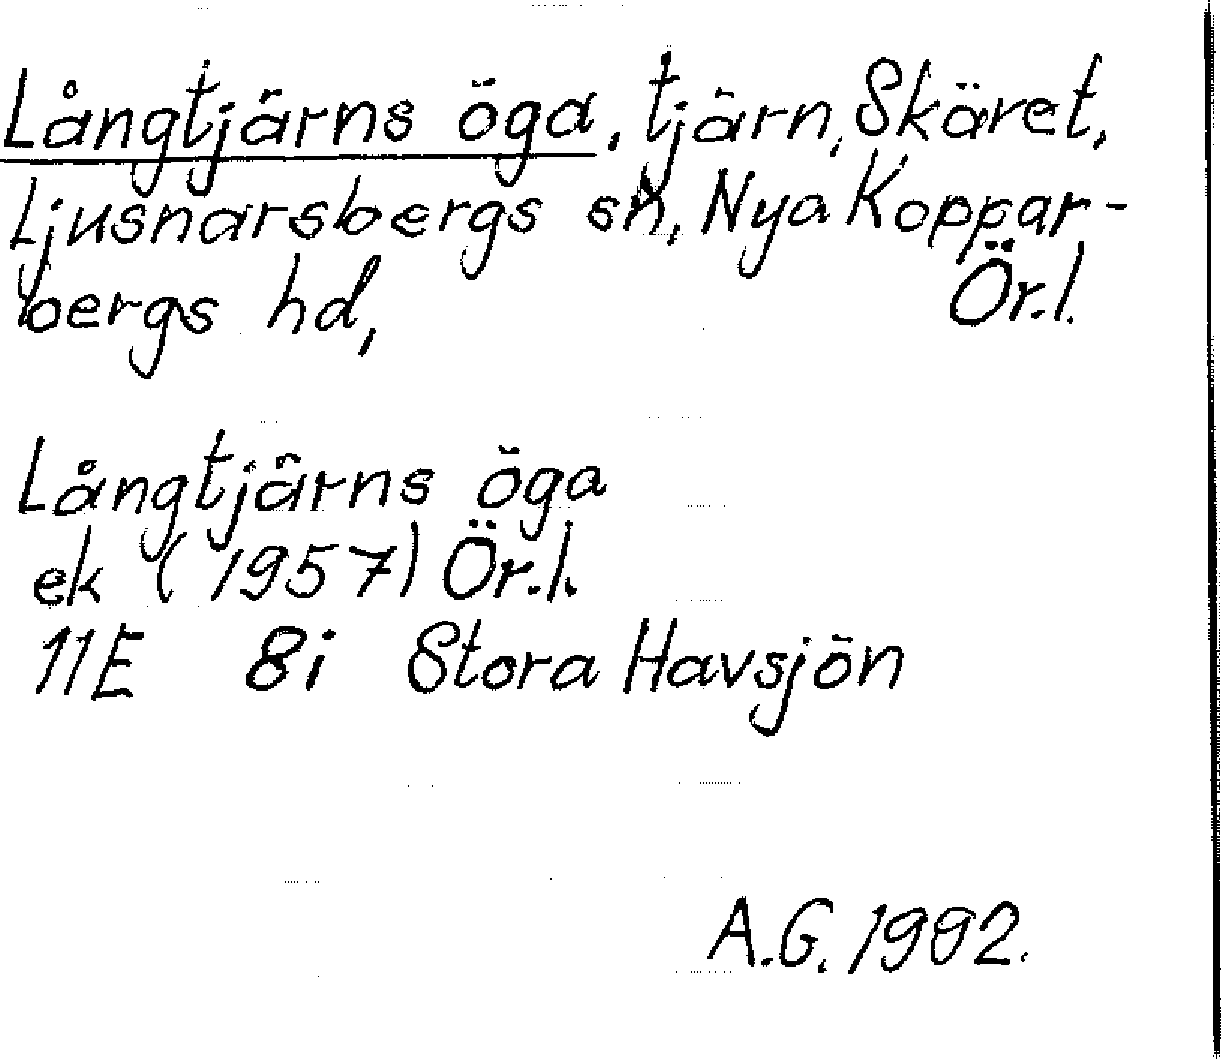 Långtjärns öga, tjärn, Skäret,
Ljusnarsbergs sn, Nya Koppar-
bergs hd, Ör.l.
Långtjärns öga
ek (1957) Ör.l.
11E 8i Stora Havsjön
A.G. 1992.